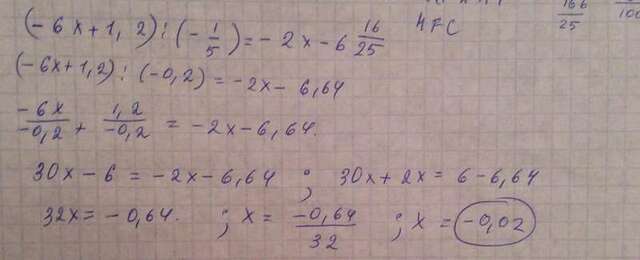 166/25 100
(-6x+1,2):(-1/5)=-2x-6 16/25 HFC
(-6x+1,2):(-0,2)=-2x-6,64
-6x/-0,2 + 1,2/-0,2 = -2x-6,64.
30x-6=-2x-6,64 ; 30x+2x=6-6,64
32x=-0,64. ; x=-0,64/32 ; x=-0,02